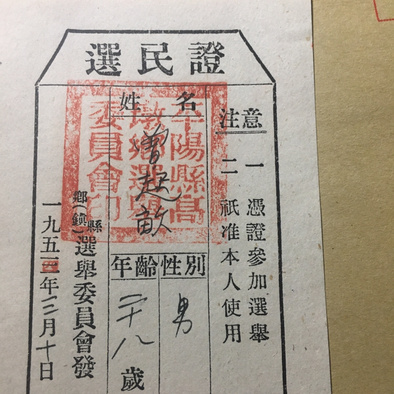 選民證
注意
一 憑證參加選舉
二 祇准本人使用
姓名
曾超
性別
男
年齡
二十八歲
平陽縣高
選舉
委員會印
縣
鄉(鎮)選舉委員會發
一九五三年二月十日